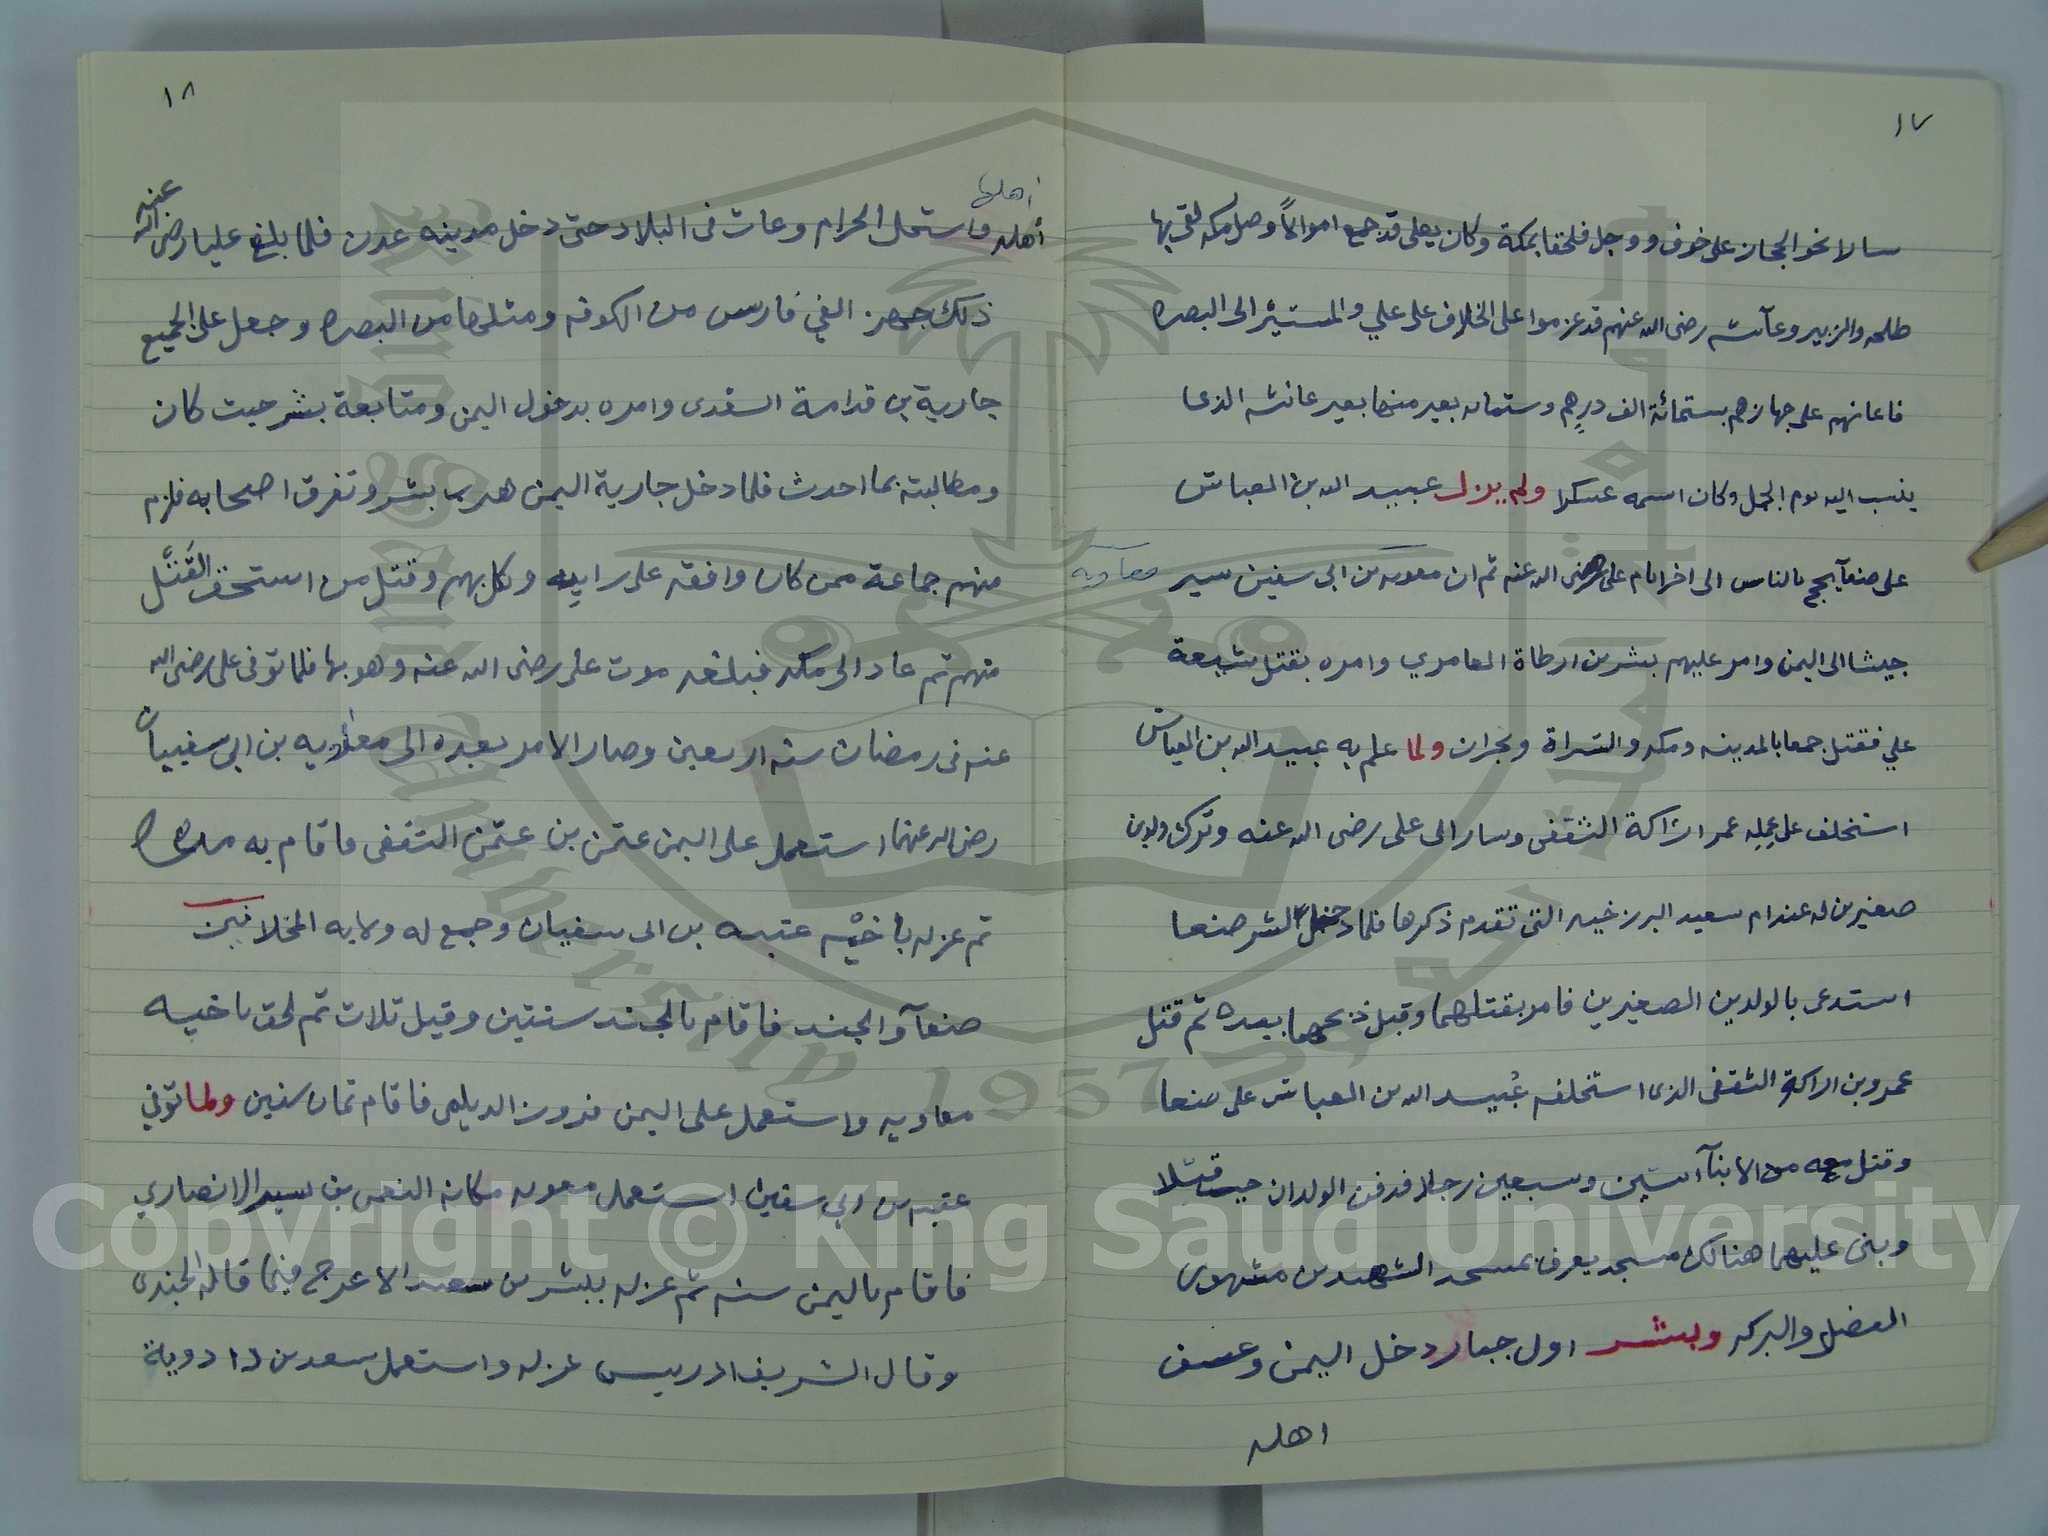 ١٧
سالا نحو الحجاز على خوف ووجل فلحقا بمكة وكان يعلى قد جمع اموالاً وصل مكه لقي بها
طلحه والزبير وعآئشه رضى الله عنهم قد عزموا على الخلاف على علي والمستير الى البصره
فاعانهم على جهازهم بستمائة الف درهم وستمائه بعير منها بعير عائشه الذى
ينسب اليه يوم الجمل وكان اسمه عسكرا ولم يزل عبيد الله بن العباس
على صنعآ يحج بالناس الى اخر ايام على رضى الله عنه ثم ان معويه بن ابى سفين سير
معآويه
جيشا الى اليمن وامر عليهم بشر بن ارطاة العامري وامره بقتل شيعة
علي فقتل جمعا بالمدينه ومكه والسراة ونجران ولما علم به عبيد الله بن العباس
استخلف على عمله عمر اراكة الثقفى وسار الى على رضى الله عنه وترك ولدين
صغيرين له عند ام سعيد البرزخيه التى تقدم ذكرها فلما دخل بشر صنعا
استدعى بالولدين الصغيرين فامر بقتلهما وقيل ذبحهما بيده ثم قتل
عمرو بن اراكة الثقفى الذى استخلفه عُبيد الله بن العباس على صنعا
وقتل معه من الابنآ اثنين وسبعين رجلا فدفن الولدان حيث قتلا
وبنى عليهما هنالك مسجد يعرف بمسجد الشهيدين مشهور
الفضل والبركه وبشر اول جبار دخل اليمن وعسف
اهله
١٨
اهلها
أهله فاستحل الحرام وعاث فى البلاد حتى دخل مدينه عدن فلما بلغ عليا رضى الله عنه
ذلك جهز الفي فارس من الكوفه ومثلها من البصره وجعل على الجميع
جارية بن قدامة السعدى وامره بدخول اليمن ومتابعة بشر حيث كان
ومطالبته بما احدث فلما دخل جارية اليمن هرب بشر وتفرق اصحابه فلزم
منهم جماعة ممن كان وافقه على رايه وكل بهم وقتل من استحق القَتْل
منهم ثم عاد الى مكه فبلغه موت على رضى الله عنه وهو بها فلما توفى على رضى الله
عنه فى رمضان سنه اربعين وصار الامر بعده الى معاويه بن ابى سفيان
رضى الله عنهما استعمل على اليمن عثمن بن عثمن الثقفى فاقام به مده
ثم عزله باخيه عتبه بن ابى سفيان وجمع له ولايه المخلافين
صنعآ والجند فاقام بالجند سنتين وقيل ثلاث ثم لحق باخيه
معاويه واستعمل على اليمن فيروز الديلمى فاقام ثمان سنين ولما توفي
عتبه بن ابى سفين استعمل معويه مكانه النعمن بن بشير الانصاري
فاقام باليمن سنه ثم عزله ببشر بن سعيد الاعرج فيما قاله الجندى
وقال الشريف ادريس عزله واستعمل سعد بن دادوية
Copyright © King Saud University
King Saud University
جامعة الملك سعود
1957